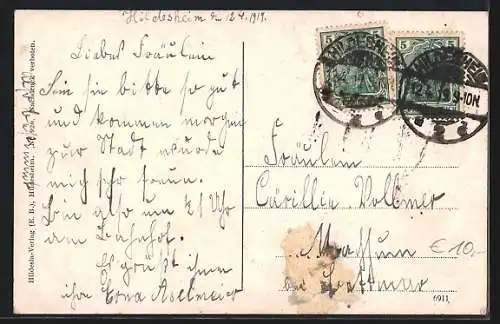 Hildesheim d 12 4. 1919.
Liebes Fräulein
Sein sie bitte so gut
und kommen morgen
zur Stadt würde
mich sehr freun.
Bin also um 2 Uhr
am Bahnhof.
Es grüßt ihnen
ihre Erna Aselmeier
Hildesia-Verlag (E. B.), Hildesheim. Nachdruck verboten.
5 5
5 5
HILDESHEIM
Fräulein
Cäcilie Vollmer
€ 10,-
6911